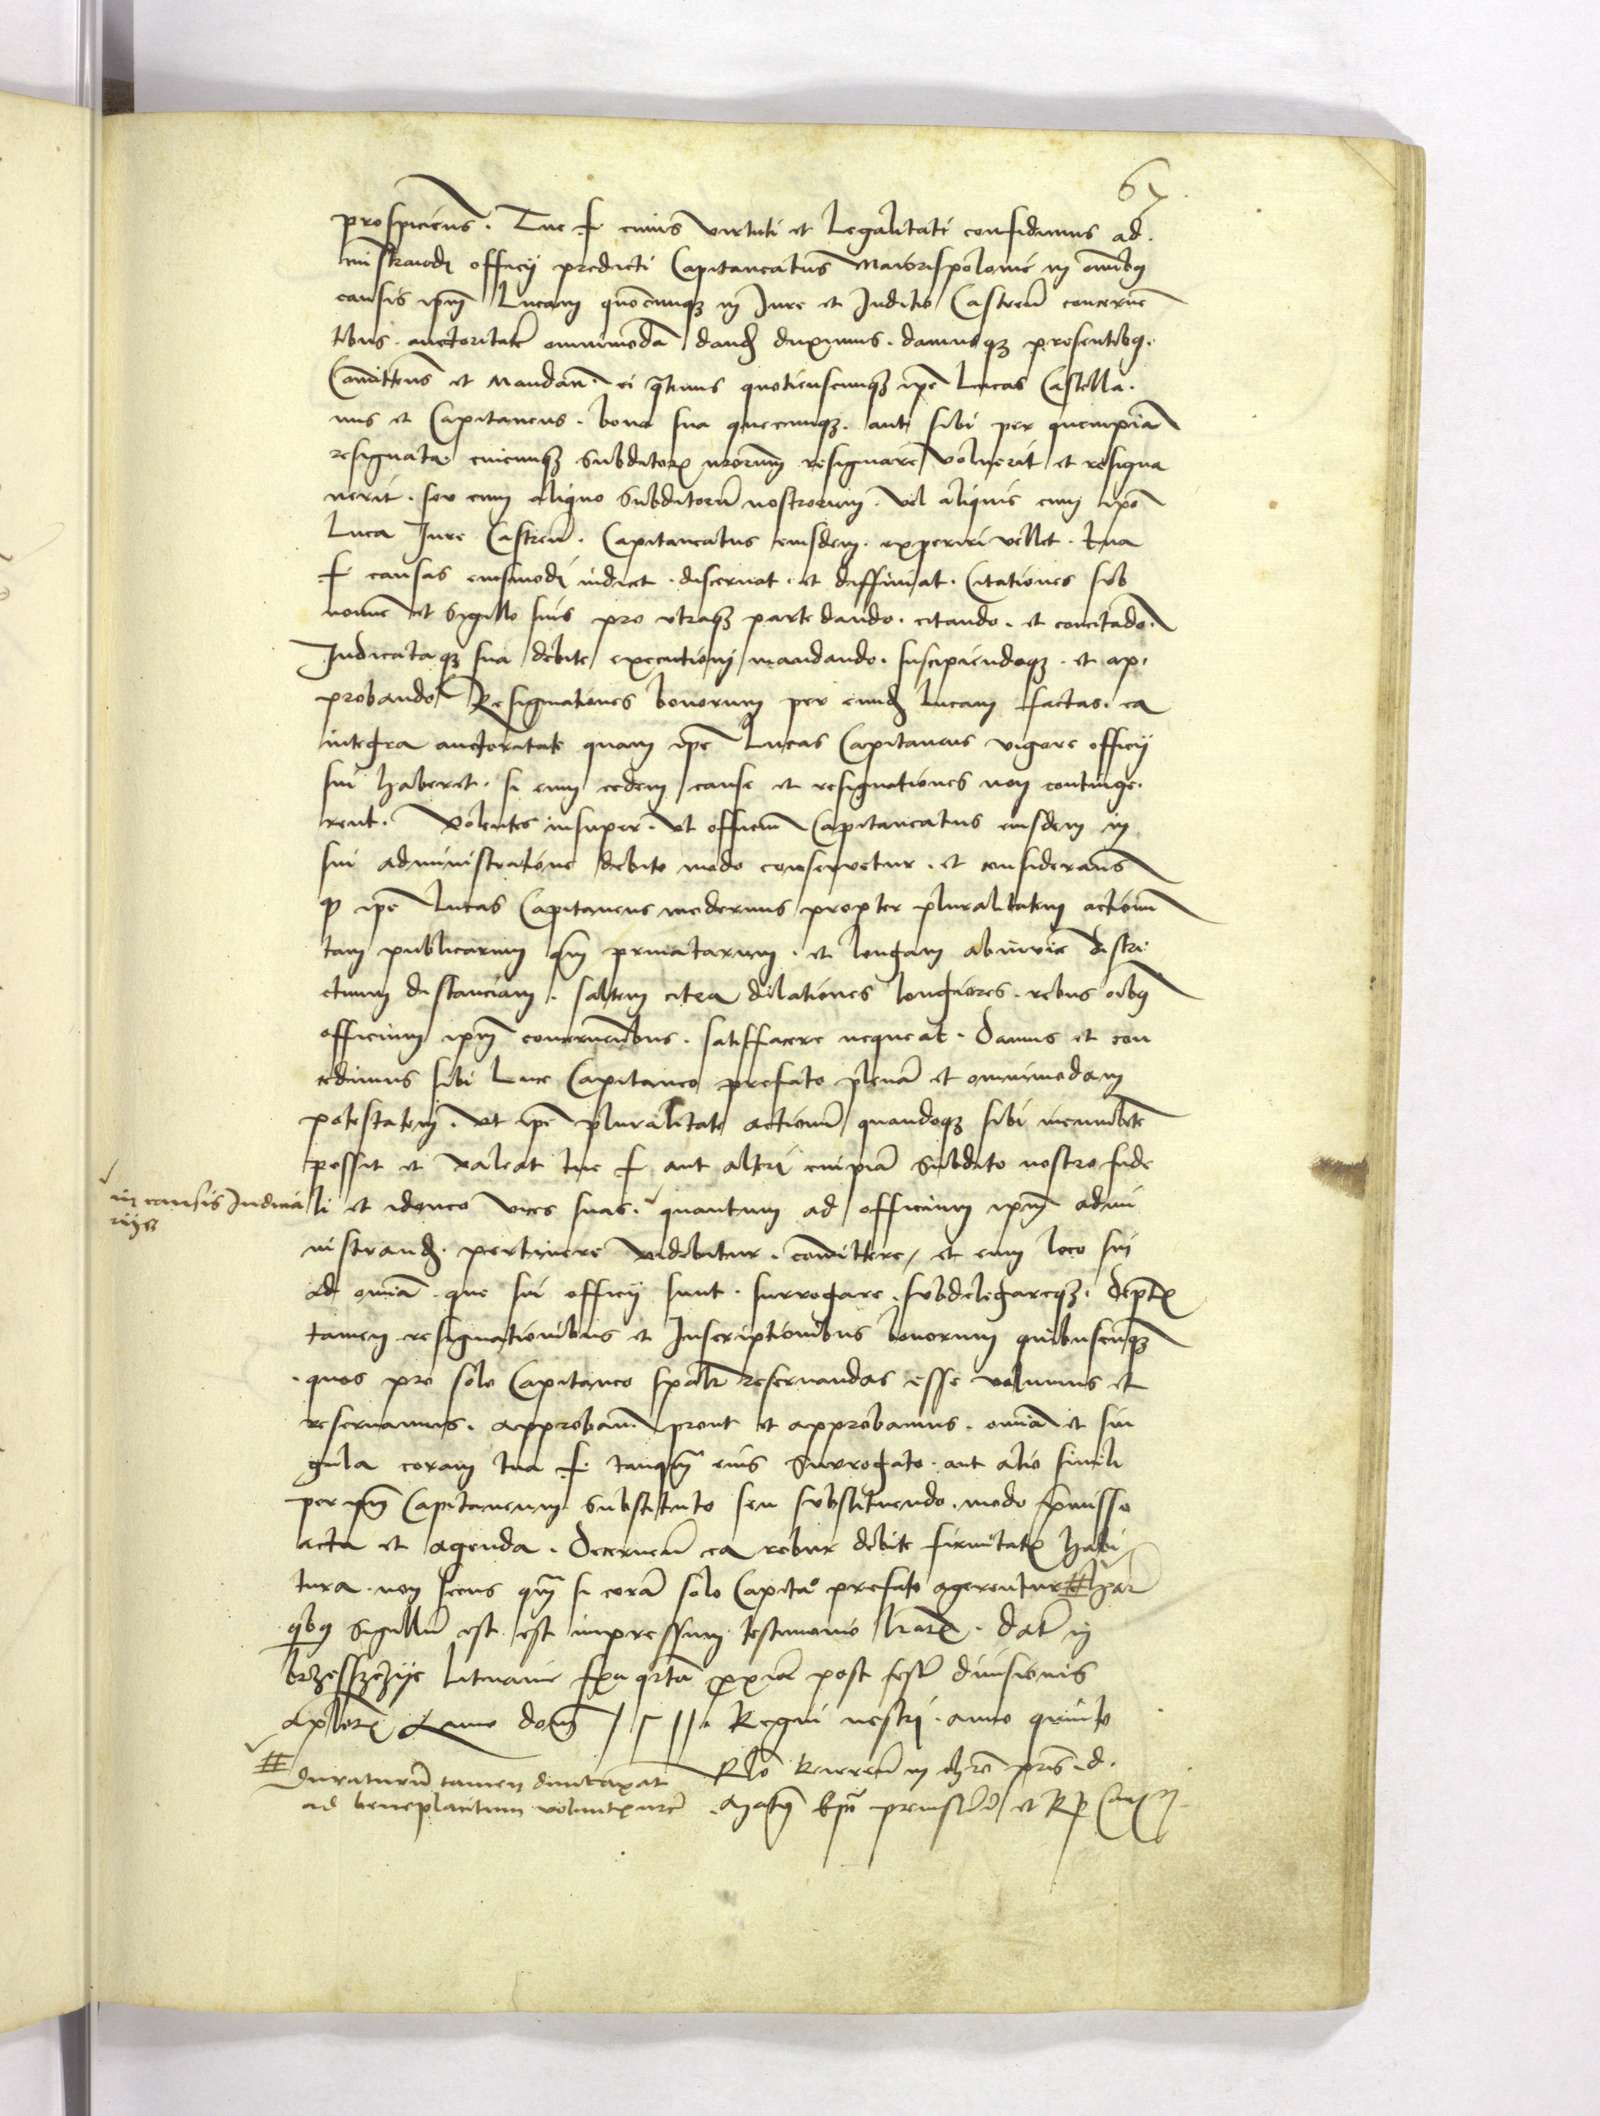 67
prospiciens. Tue f. cuius virtuti et legalitati confidimus ad.
officij predicti Capitaneatus Maiorispolonie in omibq
causis ipm Lucam quocumq3 in Jure et Juditio Castren concernen
tibus. auctoritatem omnimoda dand duximus. damusq3 presentibq.
Comittens et Mandan. ei qtinus quotienscumq3 ipe Lucas Castella.
nus et Capitaneus. bona sua quecumq3. aut sibi per quempia
resignata. cuicumq3 subditor nrorum resignare voluerit et resigna
uerit. seu cum aliquo subditorum nostrorum. vel aliquis cum ipo
Luca Jure Castren. Capitaneatus eiusdem. experiri vellet. tua
f. causas eiusmodi iudicet. discernat. et diffiniat. Citationes sub
nomine et sigillo suis pro vtraq3 parte dando. citando. et concitado.
Judicataq3 sua debite executioni mandando. suscipiendoq3. et ap.
probando Resignationes bonorum per eund Lucam factas. ea
integra auctoritate quam ipe Lucas Capitaneus vigore officij
sui haberet. si eum eedem cause et resignationes non continge.
rent. Volentes insuper. vt officium Capitaneatus eiusdem in
sui administratione debito modo conseruetur. et considerans
q ipe Lucas Capitaneus modernus propter pluralitatem actionum
tam publicarum qm priuatarum. et longam abinuice distri.
ctuum distanciam. saltem citra dilationes longiores. rebus oibq
officium ipm concernentibus. satisfacere nequeat. Damus et con
cedimus sibi Luce Capitaneo prefato plena et omnimodam
potestatem. vt ipe pluralitate actionum quandoq3 sibi incumbente
possit et valeat tue f. aut alteri cuipia subdito nostro fide
li et idoneo vices suas. quantum ad officium ipm admi
in causis Judicia
rijs
nistrand. pertinere videbitur. comittere, et eum loco sui
ad omia. que sui officij sunt. surrogare. subdelegareq3. demptis
tamen resignationibus et Inscriptionibus bonorum quibuscumq3
quas pro solo Capitaneo spalr reseruandas esse volumus et
reseruamus. approban. prout et approbamus. omia et sin
gula coram tua f. tanqm eius surrogato. aut alio simili
per ipm Capitaneum substituto seu substituendo. modo pmisso
acta et agenda. Decernen ea robur debite firmitatis habi
tura. non secus qm si cora solo Capitao prefato agerentur # har
qbq sigillum est est impressum testimonio lrar. Dat in
brzesszczye Lituanie fra qrta proxia post festum diuisionis
Aplorum Anno domi 1511. Regni nostri. anno quinto
# duraturum tamen dumtaxat
ad beneplacitum